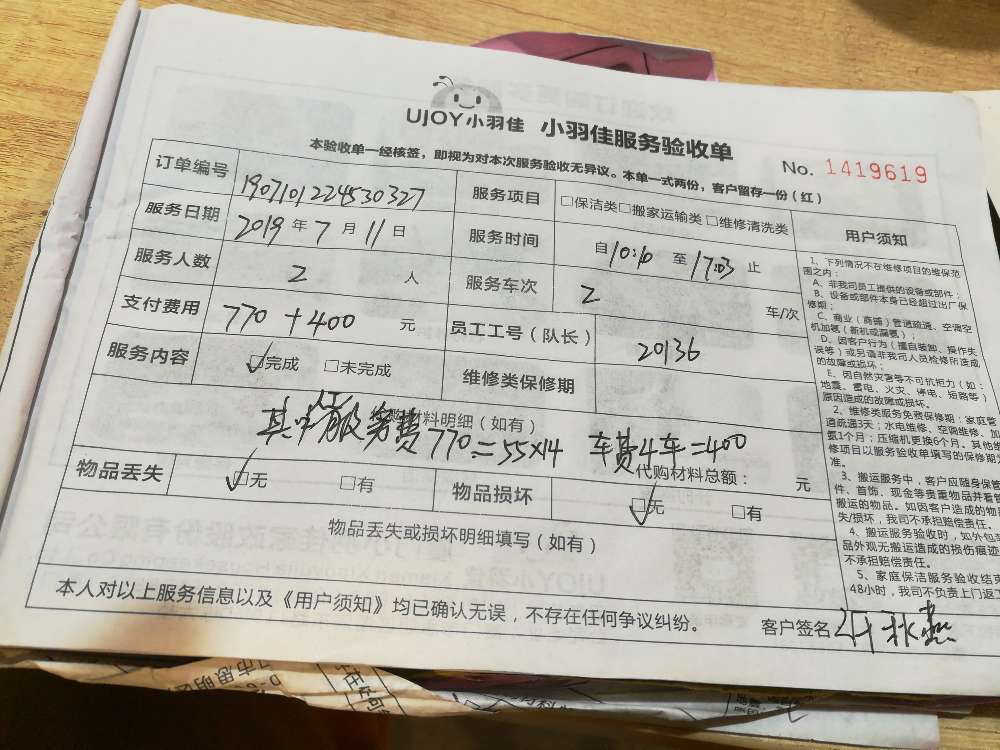 UJOY小羽佳 小羽佳服务验收单
No. 1419619
本验收单一经核签，即视为对本次服务验收无异议。本单一式两份，客户留存一份（红）
订单编号 190710122453032​7 服务项目 □保洁类□搬家运输类 □维修清洗类
服务日期 2019 年 7 月 11 日 服务时间 自 10:10 至 17:03 止
服务人数 2 人 服务车次 2 车/次
支付费用 770 + 400 元 员工工号（队长） 20136
服务内容 ☑完成 □未完成 维修类保修期
材料明细（如有）
其中服务费770=55×14 车费4车=400
代购材料总额： 元
物品丢失 ☑无 □有 物品损坏 ☑无 □有
物品丢失或损坏明细填写（如有）
本人对以上服务信息以及《用户须知》均已确认无误，不存在任何争议纠纷。
客户签名
用户须知
1、下列情况不在维修项目的维保范
围之内：
A、非我司员工提供的设备或部件；
B、设备或部件本身已经超过出厂保
修期；
C、商业（商铺）管道疏通、空调空
机加氨（新机或漏氨）；
D、因客户行为（擅自装卸、操作失
误等）或另请非我司人员检修所造成
的故障或损坏；
E、因自然灾害等不可抗拒力（如：
地震、雷电、火灾、停电、短路等）
原因造成的故障或损坏。
2、维修类服务免费保修期：家庭管
道疏通3天；水电维修、空调维修、加
氨1个月；压缩机更换6个月。其他维
修项目以服务验收单填写的保修期为
准。
3、搬运服务中，客户应随身保管
件、首饰、现金等贵重物品并看管
搬运的物品。如因客户造成的物品
失/损坏，我司不承担赔偿责任。
4、搬运服务验收时，如外包装
品外观无搬运造成的损伤痕迹
不承担赔偿责任。
5、家庭保洁服务验收结束
48小时，我司不负责上门返工